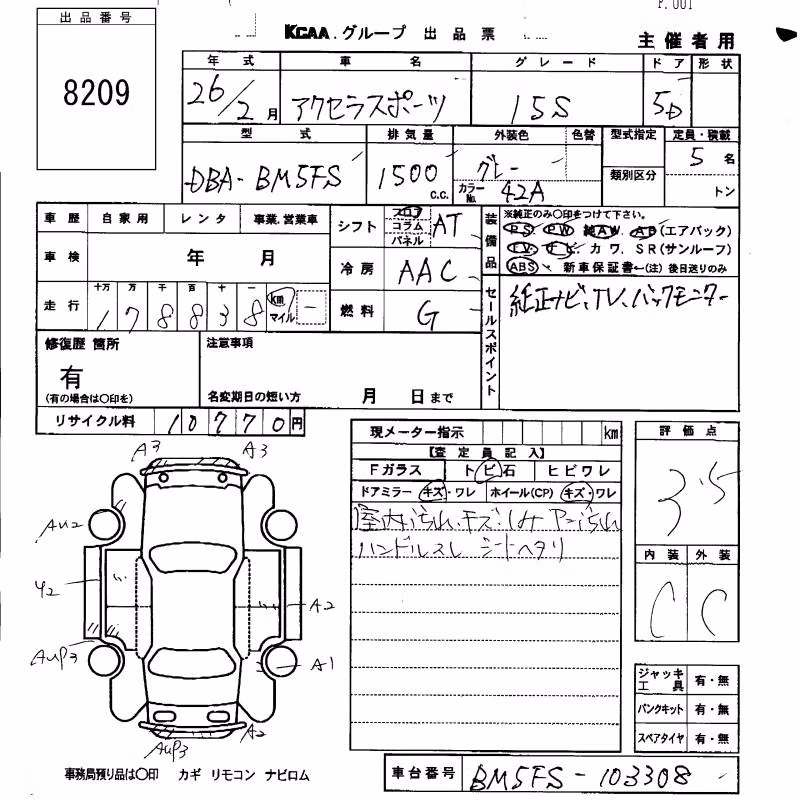 P.001
出品番号
8209
KCAA.グループ 出品票
主催者用
年式 車名 グレード ドア 形状
26/2月 アクセラスポーツ 15S 5D
型式 排気量 外装色 色替 型式指定 定員・積載
DBA-BM5FS 1500 c.c. グレー 類別区分 5名
カラーNo. 42A トン
車歴 自家用 レンタ 事業.営業車
シフト フロア コラム パネル AT
装備品 ※純正のみ〇印をつけて下さい。
PS. PW 純AW. AB(エアバック)
TV. ナビ. カワ. SR(サンルーフ)
ABS 新車保証書←(注) 後日送りのみ
車検 年 月
冷房 AAC
走行 十万 万 千 百 十 一 km マイル
178838 -
燃料 G
セールスポイント
純正ナビ、TV、バックモニター
修復歴 箇所 注意事項
有
(有の場合は〇印を) 名変期日の短い方 月 日まで
リサイクル料 10770円
現メーター指示 km
【査定員記入】
Fガラス トビ石 ヒビワレ
ドアミラー キズ・ワレ ホイール(CP) キズ・ワレ
室内汚れ、キズ
ハンドルスレ シートヘタリ
評価点
3.5
内装 外装
C C
A3 A3
AU2
Y2
A2
AUP3
A1
AUP3 A2
ジャッキ工具 有・無
パンクキット 有・無
スペアタイヤ 有・無
事務局預り品は〇印 カギ リモコン ナビロム
車台番号 BM5FS-103308